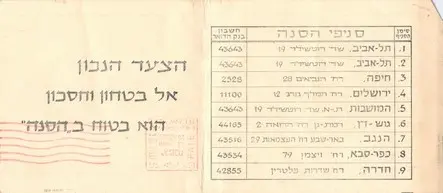 הצעד הנכון
אל בטחון וחסכון
הוא בטוח ב„הסנה"
סימן הסניף סניפי הסנה חשבון בנק הדואר
1. תל-אביב, שד' רוטשילד 19 43643
2. תל-אביב, שד' רוטשילד 19 43643
3. חיפה, רח' הנביאים 20 2528
4. ירושלים, רח' המלך ג'ורג' 12 11100
5. המושבות שד' רוטשילד 19, תא 43643
6. גוש-דן, רמת-גן רח' הרואה 2 44165
7. הנגב, באר-שבע רח' העצמאות 29 43516
8. כפר-סבא, רח' ויצמן 79 43534
9. חדרה, רח' שדרות פלטרין 42855